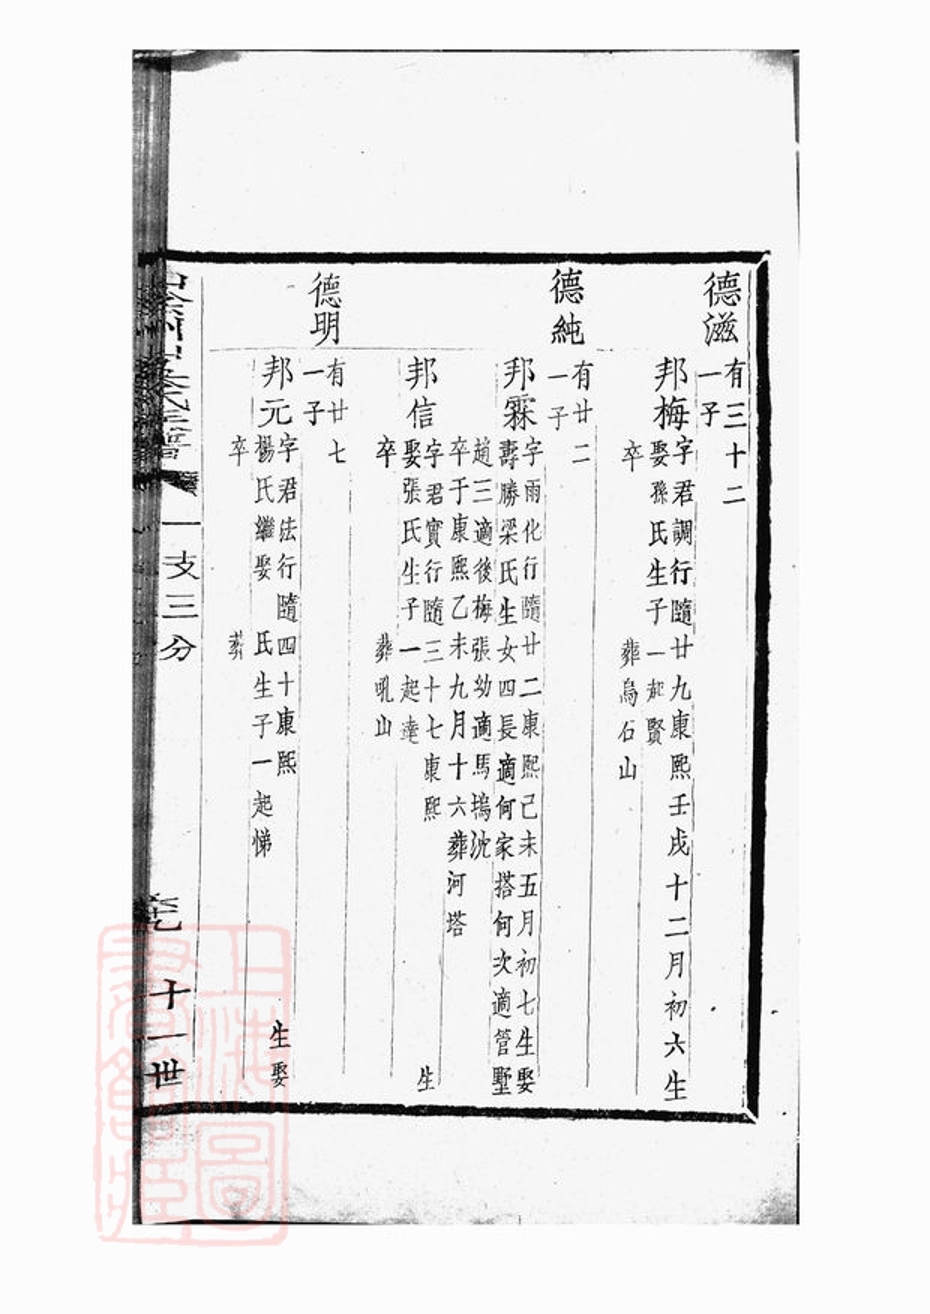 德滋
有三十二
一子
邦梅
字君調行隨廿九康熙壬戌十二月初六生
娶孫氏生子一起賢
卒 葬烏石山
德純
有廿二
一子
邦霖
字雨化行隨廿二康熙己未五月初七生娶
壽勝梁氏生女四長適何家搭何次適管墅
趙三適後梅張幼適馬塢沈
卒于康熙乙未九月十六葬河塔
邦信
字君實行隨三十七康熙 生
娶張氏生子一起達
卒 葬吼山
德明
有廿七
一子
邦元
字君法行隨四十康熙 生娶
楊氏繼娶 氏生子一起悌
卒 葬
一支三分
十一世
上海圖